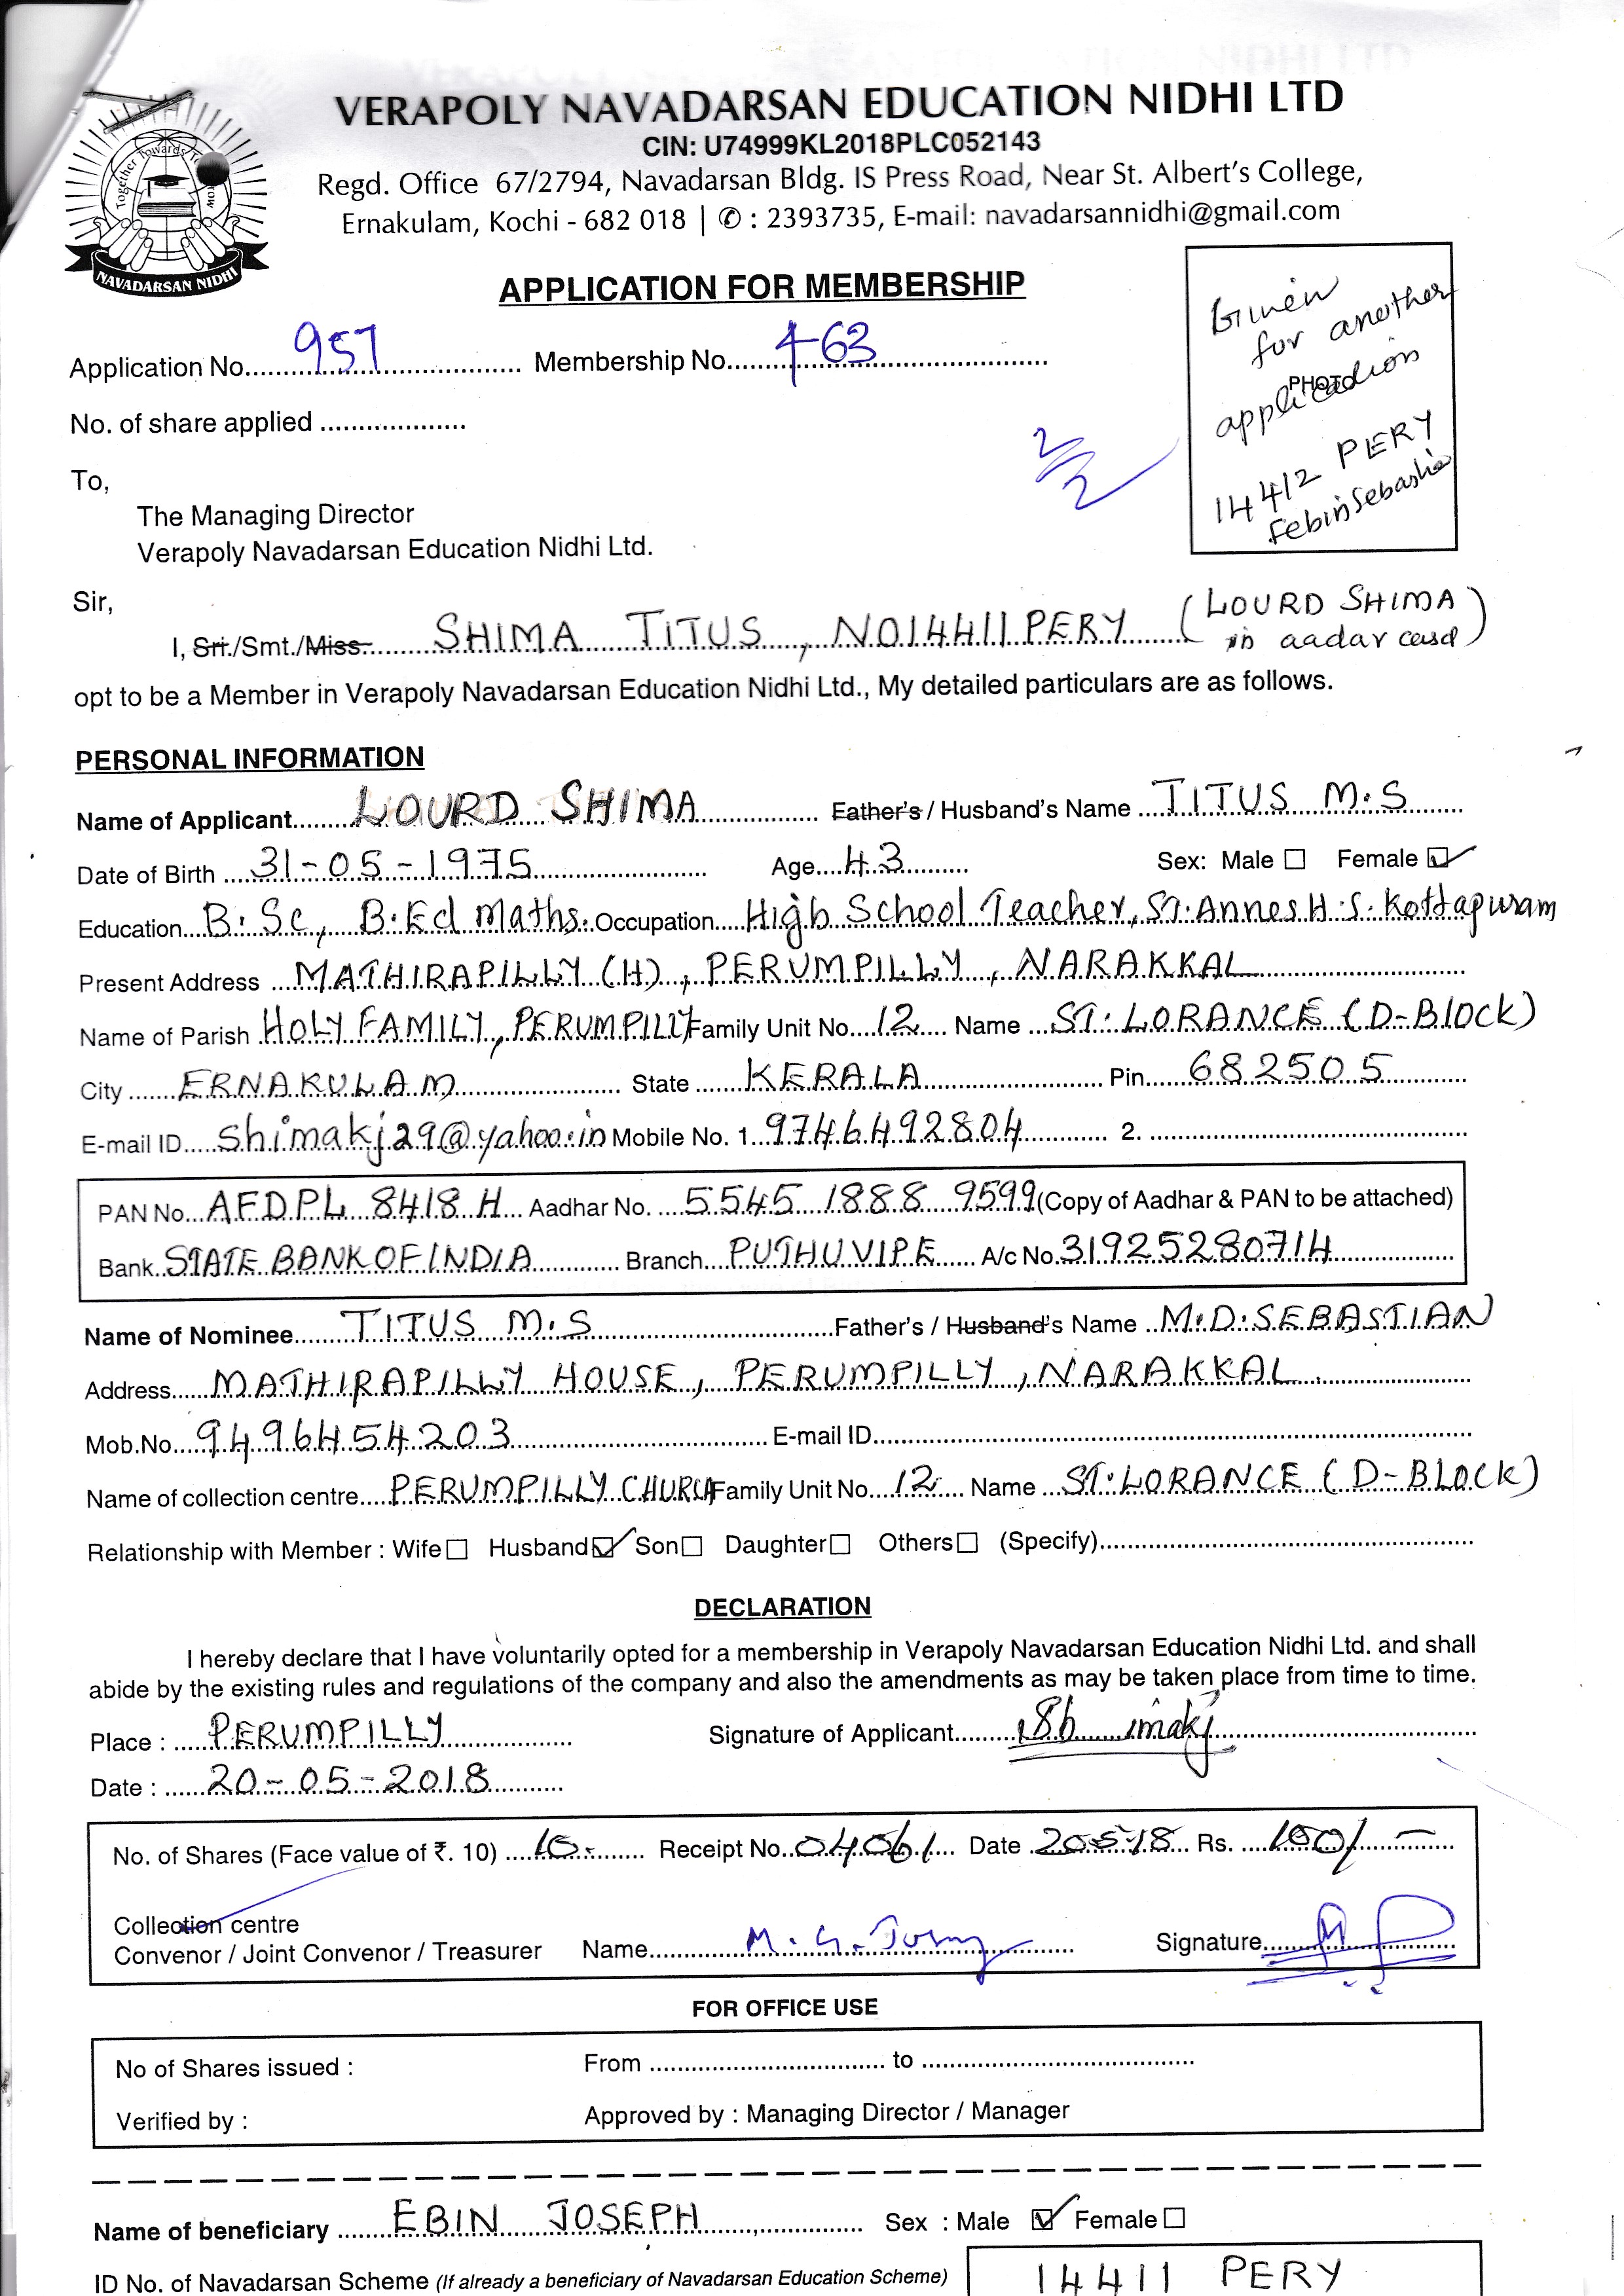 VERAPOLY NAVADARSAN EDUCATION NIDHI LTD
CIN: U74999KL2018PLC052143
Regd. Office 67/2794, Navadarsan Bldg. IS Press Road, Near St. Albert's College,
Ernakulam, Kochi - 682 018 | ✆ : 2393735, E-mail: navadarsannidhi@gmail.com
Together Towards
NAVADARSAN NIDHI
APPLICATION FOR MEMBERSHIP
Given
for another
PHOTO
application
14412 PERY
Febin Sebastia
Application No. 957 Membership No. 463
No. of share applied
2/2
To,
The Managing Director
Verapoly Navadarsan Education Nidhi Ltd.
Sir,
I, Sri./Smt./Miss. SHIMA TITUS, NO14411 PERY (LOURD SHIMA
in aadar card)
opt to be a Member in Verapoly Navadarsan Education Nidhi Ltd., My detailed particulars are as follows.
PERSONAL INFORMATION
Name of Applicant LOURD SHIMA Father's / Husband's Name TITUS M.S
Date of Birth 31-05-1975 Age 43 Sex: Male ☐ Female ☑
Education B.Sc, B.Ed Maths. Occupation High School Teacher, ST. Annes H.S. Kottapuram
Present Address MATHIRAPILLY (H), PERUMPILLY, NARAKKAL
Name of Parish HOLY FAMILY, PERUMPILLY Family Unit No. 12 Name ST. LORANCE (D-BLOCK)
City ERNAKULAM State KERALA Pin 682505
E-mail ID shimakj29@yahoo.in Mobile No. 1. 9746492804 2.
PAN No. AFDPL 8418 H Aadhar No. 5545 1888 9599 (Copy of Aadhar & PAN to be attached)
Bank STATE BANK OF INDIA Branch PUTHUVIPE A/c No. 31925280714
Name of Nominee TITUS M.S Father's / Husband's Name M.D. SEBASTIAN
Address MATHIRAPILLY HOUSE, PERUMPILLY, NARAKKAL
Mob.No. 9496454203 E-mail ID
Name of collection centre PERUMPILLY CHURCH Family Unit No. 12 Name ST. LORANCE (D-BLOCK)
Relationship with Member : Wife ☐ Husband ☑ Son ☐ Daughter ☐ Others ☐ (Specify)
DECLARATION
I hereby declare that I have voluntarily opted for a membership in Verapoly Navadarsan Education Nidhi Ltd. and shall
abide by the existing rules and regulations of the company and also the amendments as may be taken place from time to time.
Place : PERUMPILLY Signature of Applicant
Date : 20-05-2018
No. of Shares (Face value of ₹. 10) 10 Receipt No. 04061 Date 20.5.18 Rs. 100/-
Collection centre
Convenor / Joint Convenor / Treasurer Name M. G. Signature
FOR OFFICE USE
No of Shares issued : From to
Verified by : Approved by : Managing Director / Manager
Name of beneficiary EBIN JOSEPH Sex : Male ☑ Female ☐
ID No. of Navadarsan Scheme (If already a beneficiary of Navadarsan Education Scheme) 14411 PERY